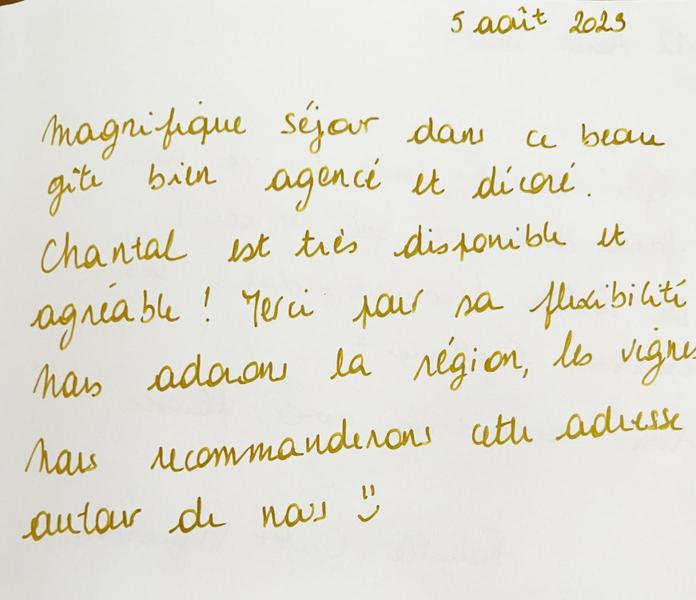 5 août 2023
Magnifique séjour dans ce beau
gîte bien agencé et décoré.
Chantal est très disponible et
agréable ! Merci pour sa flexibilité
Nous adorons la région, les vignes
Nous recommanderons cette adresse
autour de nous :)